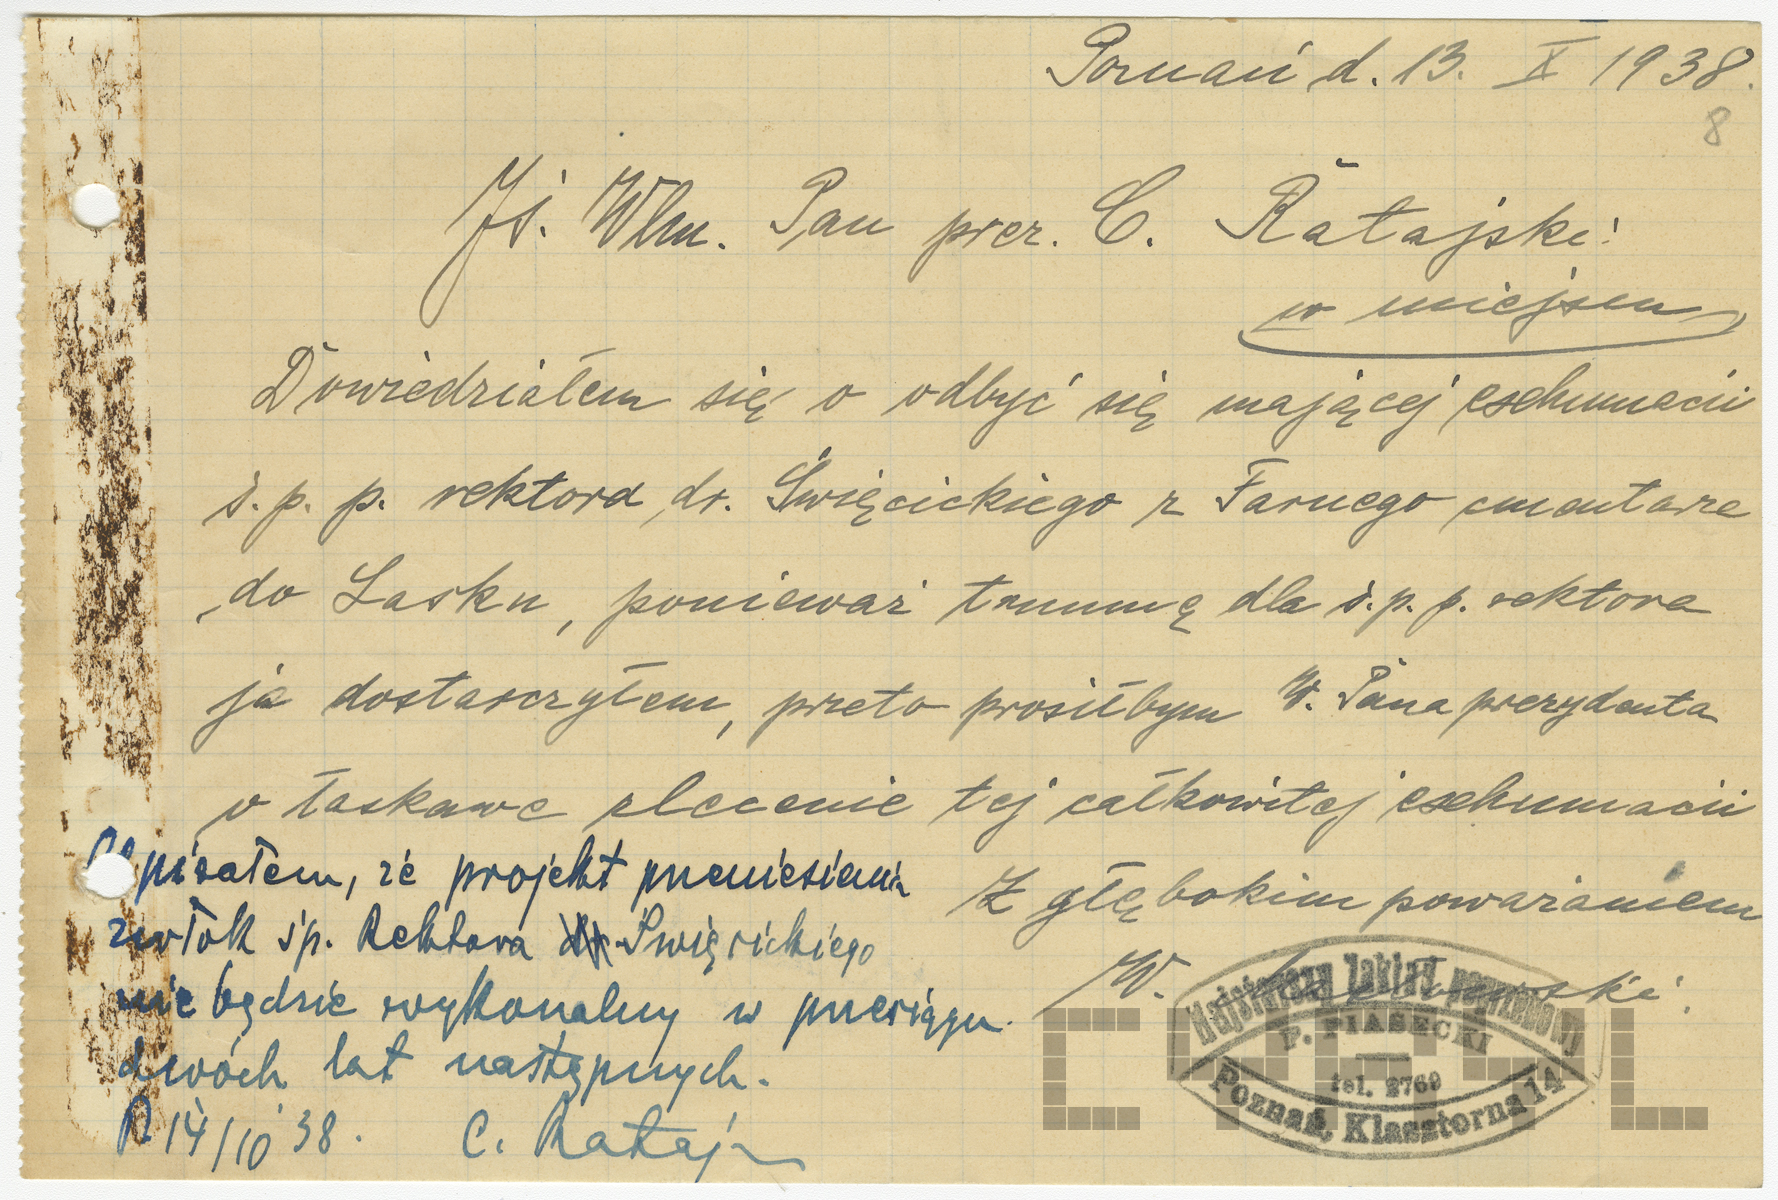 Poznań d. 13. X 1938.
8
Jś. Wlm. Pan prez. C. Ratajski
w miejscu
Dowiedziałem się o odbyć się mającej eschumacii
ś. p. p. rektora dr. Święcickiego z Farnego cmentarze
do Lasku, ponieważ trumnę dla ś. p. p. rektora
ja dostarczyłem, przeto prosiłbym W. Pana prezydenta
o łaskawe zlecenie tej całkowitej eschumacii
Z głębokim poważaniem
W.
Odpisałem, że projekt przeniesienia
zwłok śp. Rektora Święcickiego
nie będzie wykonalny w przeciągu
dwóch lat następnych.
P 14/10 38. C. Rataj
Majsterszy Zakład pogrzebowy
P. PIASECKI
tel. 2769
Poznań, Klasztorna 14
CYRYL